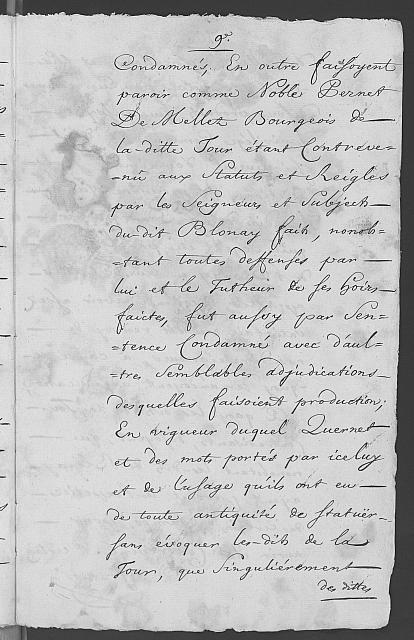 9.e
Condamnés; En outre faisoyent
paroir comme Noble Pernet
De Mellet Bourgeois de
la-ditte Tour étant Contreve-
-nû aux Statuts et Reigles
par les Seigneurs et Subject
du-dit Blonay fait, nonob-
-tant toutes deffenses par
lui et le Tutheur de ses Hoirs
faictes, fut aussy par Sen-
-tence Condamné avec d'aul-
-tres Semblables adjudications
desquelles faisoient production;
En vigueur duquel Quernet
et des mots portés par iceluy
et de l'usage quils ont eu
de toute antiquité de statuër
sans évoquer les-dits de la
Tour, que Singuliérement
des dittes